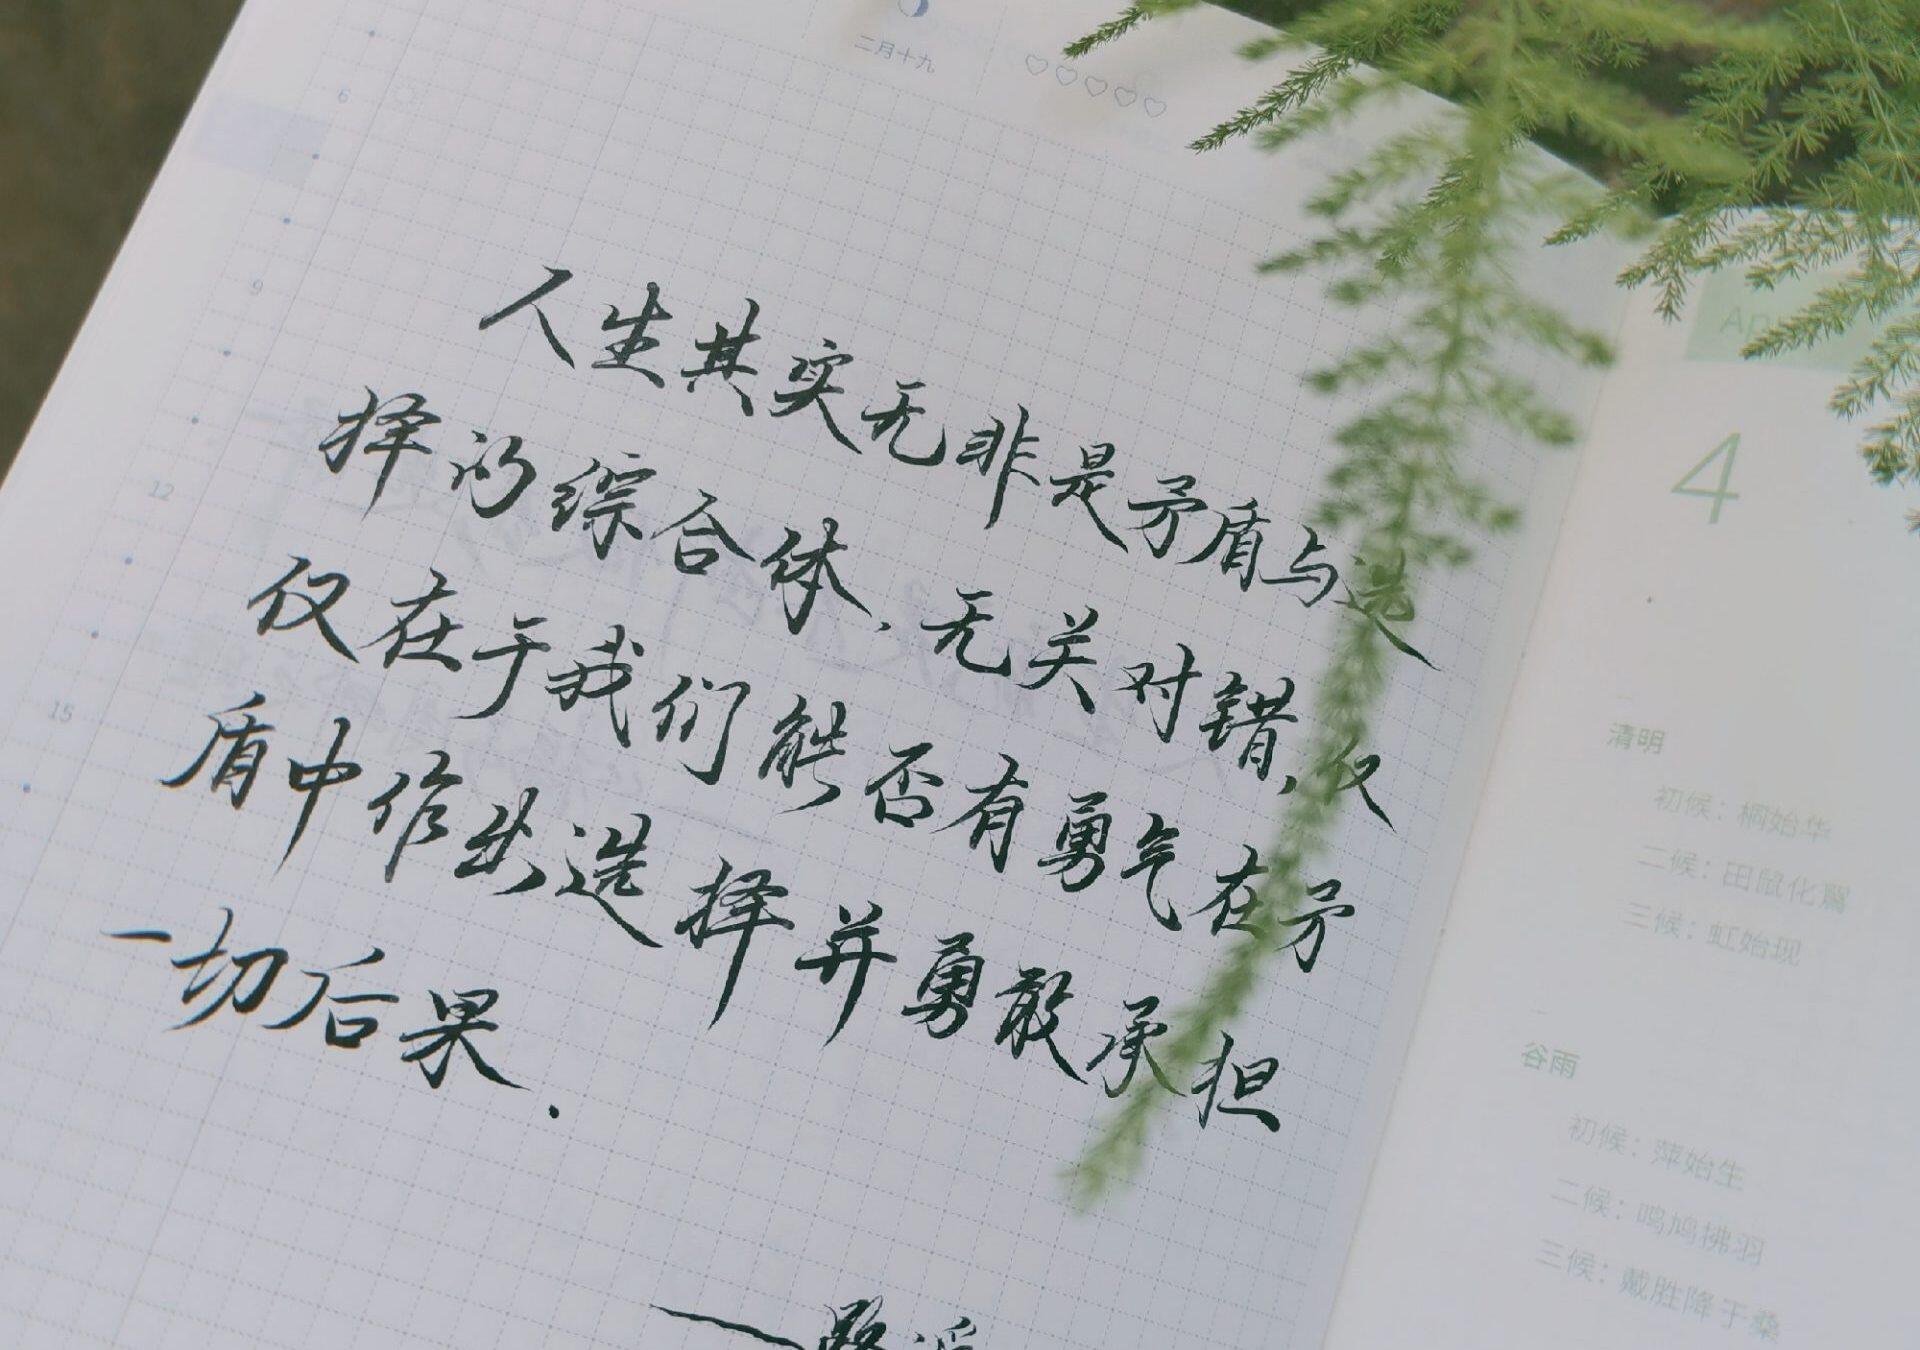 二月十九
6
人生其实无非是矛盾与选
9
择的综合体、无关对错、仅
12
仅在于我们能否有勇气在矛
15
盾中作出选择并勇敢承担
一切后果.
——路遥
4
清明
初候：桐始华
二候：田鼠化鴽
三候：虹始现
谷雨
初候：萍始生
二候：鸣鸠拂羽
三候：戴胜降于桑